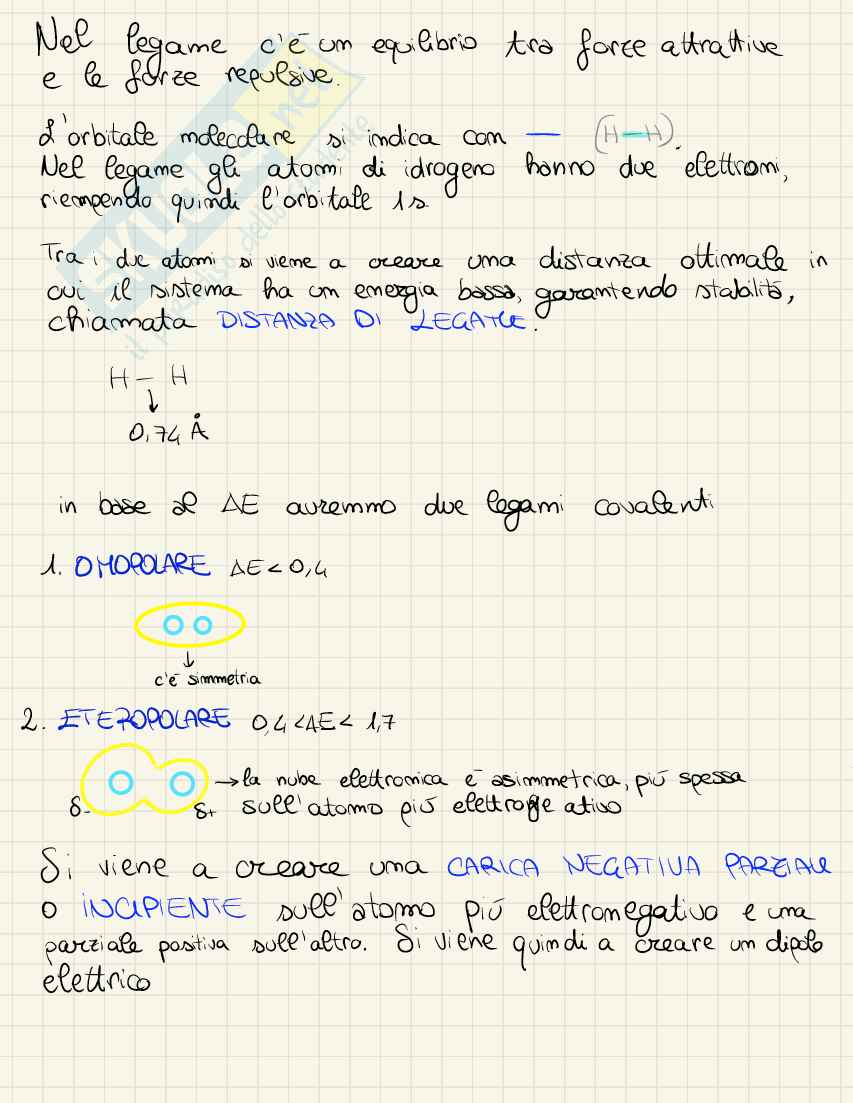 Nel legame c'é un equilibrio tra forze attrattive
e le forze repulsive.
L'orbitale molecolare si indica con — (H—H).
Nel legame gli atomi di idrogeno hanno due elettroni,
riempendo quindi l'orbitale 1s.
Tra i due atomi si viene a creare una distanza ottimale in
cui il sistema ha un energia bassa, garantendo stabilità,
chiamata DISTANZA DI LEGAME.
H — H
↓
0,74 Å
in base al ΔE avremmo due legami covalenti
1. OMOPOLARE ΔE < 0,4
↓
c'é simmetria
2. ETEROPOLARE 0,4 < ΔE < 1,7
→ la nube elettronica é asimmetrica, piú spessa
δ- δ+ sull'atomo piú elettronegativo
Si viene a creare una CARICA NEGATIVA PARZIALE
O INCIPIENTE sull'atomo piú elettronegativo e una
parziale positiva sull'altro. Si viene quindi a creare un dipolo
elettrico
SKUOLA.net
il paradiso dello studente